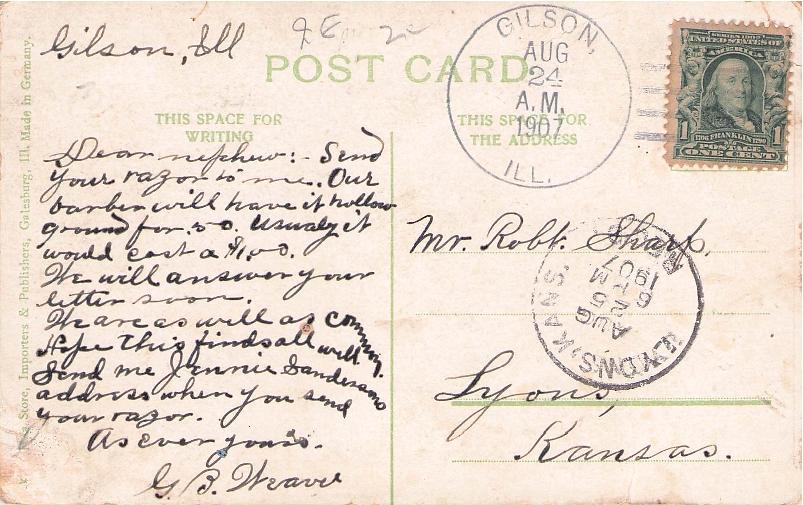 Gilson, Ill
POST CARD
GILSON,
AUG
24
A.M.
1907
ILL.
SERIES 1902
UNITED STATES OF
AMERICA
1 1
1706 FRANKLIN 1790
POSTAGE
ONE CENT
THIS SPACE FOR
WRITING
THIS SPACE FOR
THE ADDRESS
Dear nephew:- Send
your razor to me. Our
barber will have it hollow
ground for .50. Usualy it
would cost a $1.00.
We will answer your
letter soon.
We are as well as common.
Hope this finds all well.
Send me Jennie Sandersons
address when you send
your razor.
As ever yours.
G. B. Weaver
Mr. Robt. Sharp,
Lyons,
Kansas.
LYONS, KANS.
AUG
25
6
M
1907
Store, Importers & Publishers, Galesburg, Ill. Made in Germany.